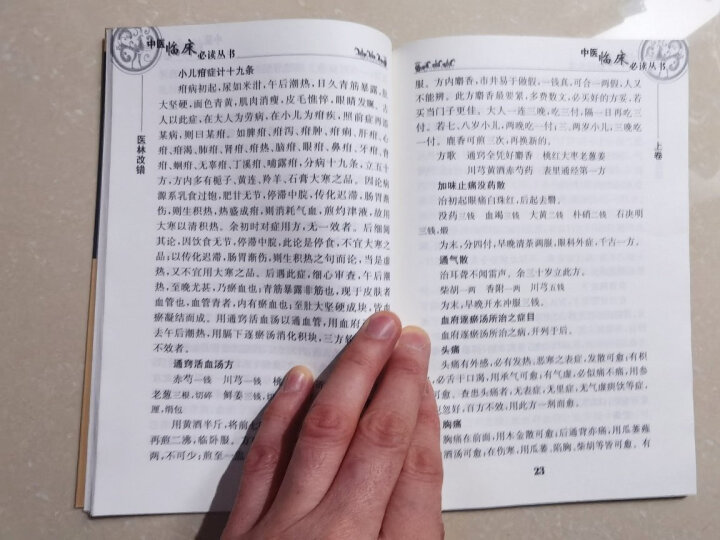 中医临床必读丛书
医林改错
小儿疳症计十九条
疳病初起,尿如米泔,午后潮热,日久青筋暴露,肚
大坚硬,面色青黄,肌肉消瘦,皮毛憔悴,眼睛发𥆧。古
人以此症,在大人为劳病,在小儿为疳疾,照前症再添
某病,则曰某疳。如脾疳、疳泻、疳肿、疳痢、肝疳、心
疳、疳渴、肺疳、肾疳、疳热、脑疳、眼疳、鼻疳、牙疳、脊
疳、蛔疳、无辜疳、丁溪疳、哺露疳,分病十九条,立五十
方,方内多有栀子、黄连、羚羊、石膏大寒之品。因论病
源系乳食过饱,肥甘无节,停滞中脘,传化迟滞,肠胃渐
伤,则生积热,热盛成疳,则消耗气血,煎灼津液,故用
大寒以清积热。余初时对症用方,无一效者。后细阅
其论,因饮食无节,停滞中脘,此论是停食,不宜大寒之
品;以传化迟滞,肠胃渐伤,则生积热之句而论,当是虚
热,又不宜用大寒之品。后遇此症,细心审查,午后潮
热,至晚尤甚,乃瘀血也;青筋暴露非筋也,现于皮肤者
血管也,血管青者,内有瘀血也;至肚大坚硬成块,皆血
瘀凝结而成。用通窍活血汤以通血管,用血府
去午后潮热,用膈下逐瘀汤消化积块,三方
不效者。
通窍活血汤方
赤芍一钱 川芎一钱 桃
老葱三根,切碎 鲜姜三钱,切
厘,绢包
用黄酒半斤,将前七
再煎二沸,临卧服。方
两,不可少;煎至一
中医临床必读丛书
上卷
服。方内麝香,市井易于做假,一钱真,可合一两假,人又
不能辨。此方麝香最要紧,多费数文,必买好的方妥,若
买当门子更佳。大人一连三晚,吃三付,隔一日再吃三
付。若七、八岁小儿,两晚吃一付;三、两岁小儿,三晚吃
一付。麝香可煎三次,再换新的。
方歌 通窍全凭好麝香 桃红大枣老葱姜
川芎黄酒赤芍药 表里通经第一方
加味止痛没药散
治初起眼痛白珠红,后起云翳。
没药三钱 血竭三钱 大黄二钱 朴硝二钱 石决明
三钱,煅
为末,分四付,早晚清茶调服,眼科外症,千古一方。
通气散
治耳聋不闻雷声。余三十岁立此方。
柴胡一两 香附一两 川芎五钱
为末,早晚开水冲服三钱。
血府逐瘀汤所治之症目
血府逐瘀汤所治之病,开列于后。
头痛
头痛有外感,必有发热、恶寒之表症,发散可愈;有积
,必舌干口渴,用承气可愈;有气虚,必似痛不痛,用参
可愈。查患头痛者,无表症,无里症,无气虚痰饮等症,
忽好,百方不效,用此方一剂而愈。
胸痛
胸痛在前面,用木金散可愈;后通背亦痛,用瓜蒌薤
酒汤可愈;在伤寒,用瓜蒌、陷胸、柴胡等皆可愈。有
23